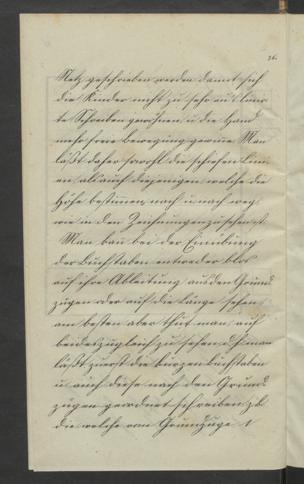 36.
Netz geschrieben werden damit sich
die Kinder nicht zu sehr an's linir
te Schreiben gewöhnen u die Hand
mehr freie Bewegung gewinne Man
läßt daher sowohl die schiefen Lini
en als auch diejenigen welche die
Höhe bestimmen nach u nach weg
wie in den Zeichnungen zu sehen ist.
Man kan bei der Einübung
der Buchstaben entweder blos
auf ihre Ableitung aus den Grund
zügen oder auf die Länge sehen
am besten aber thut man auf
beides zugleich zu sehen d h man
läßt zuerst die kurzen Buchstaben
u auch diese nach den Grund
zügen geordnet schreiben z B
die welche vom Grundzuge 1